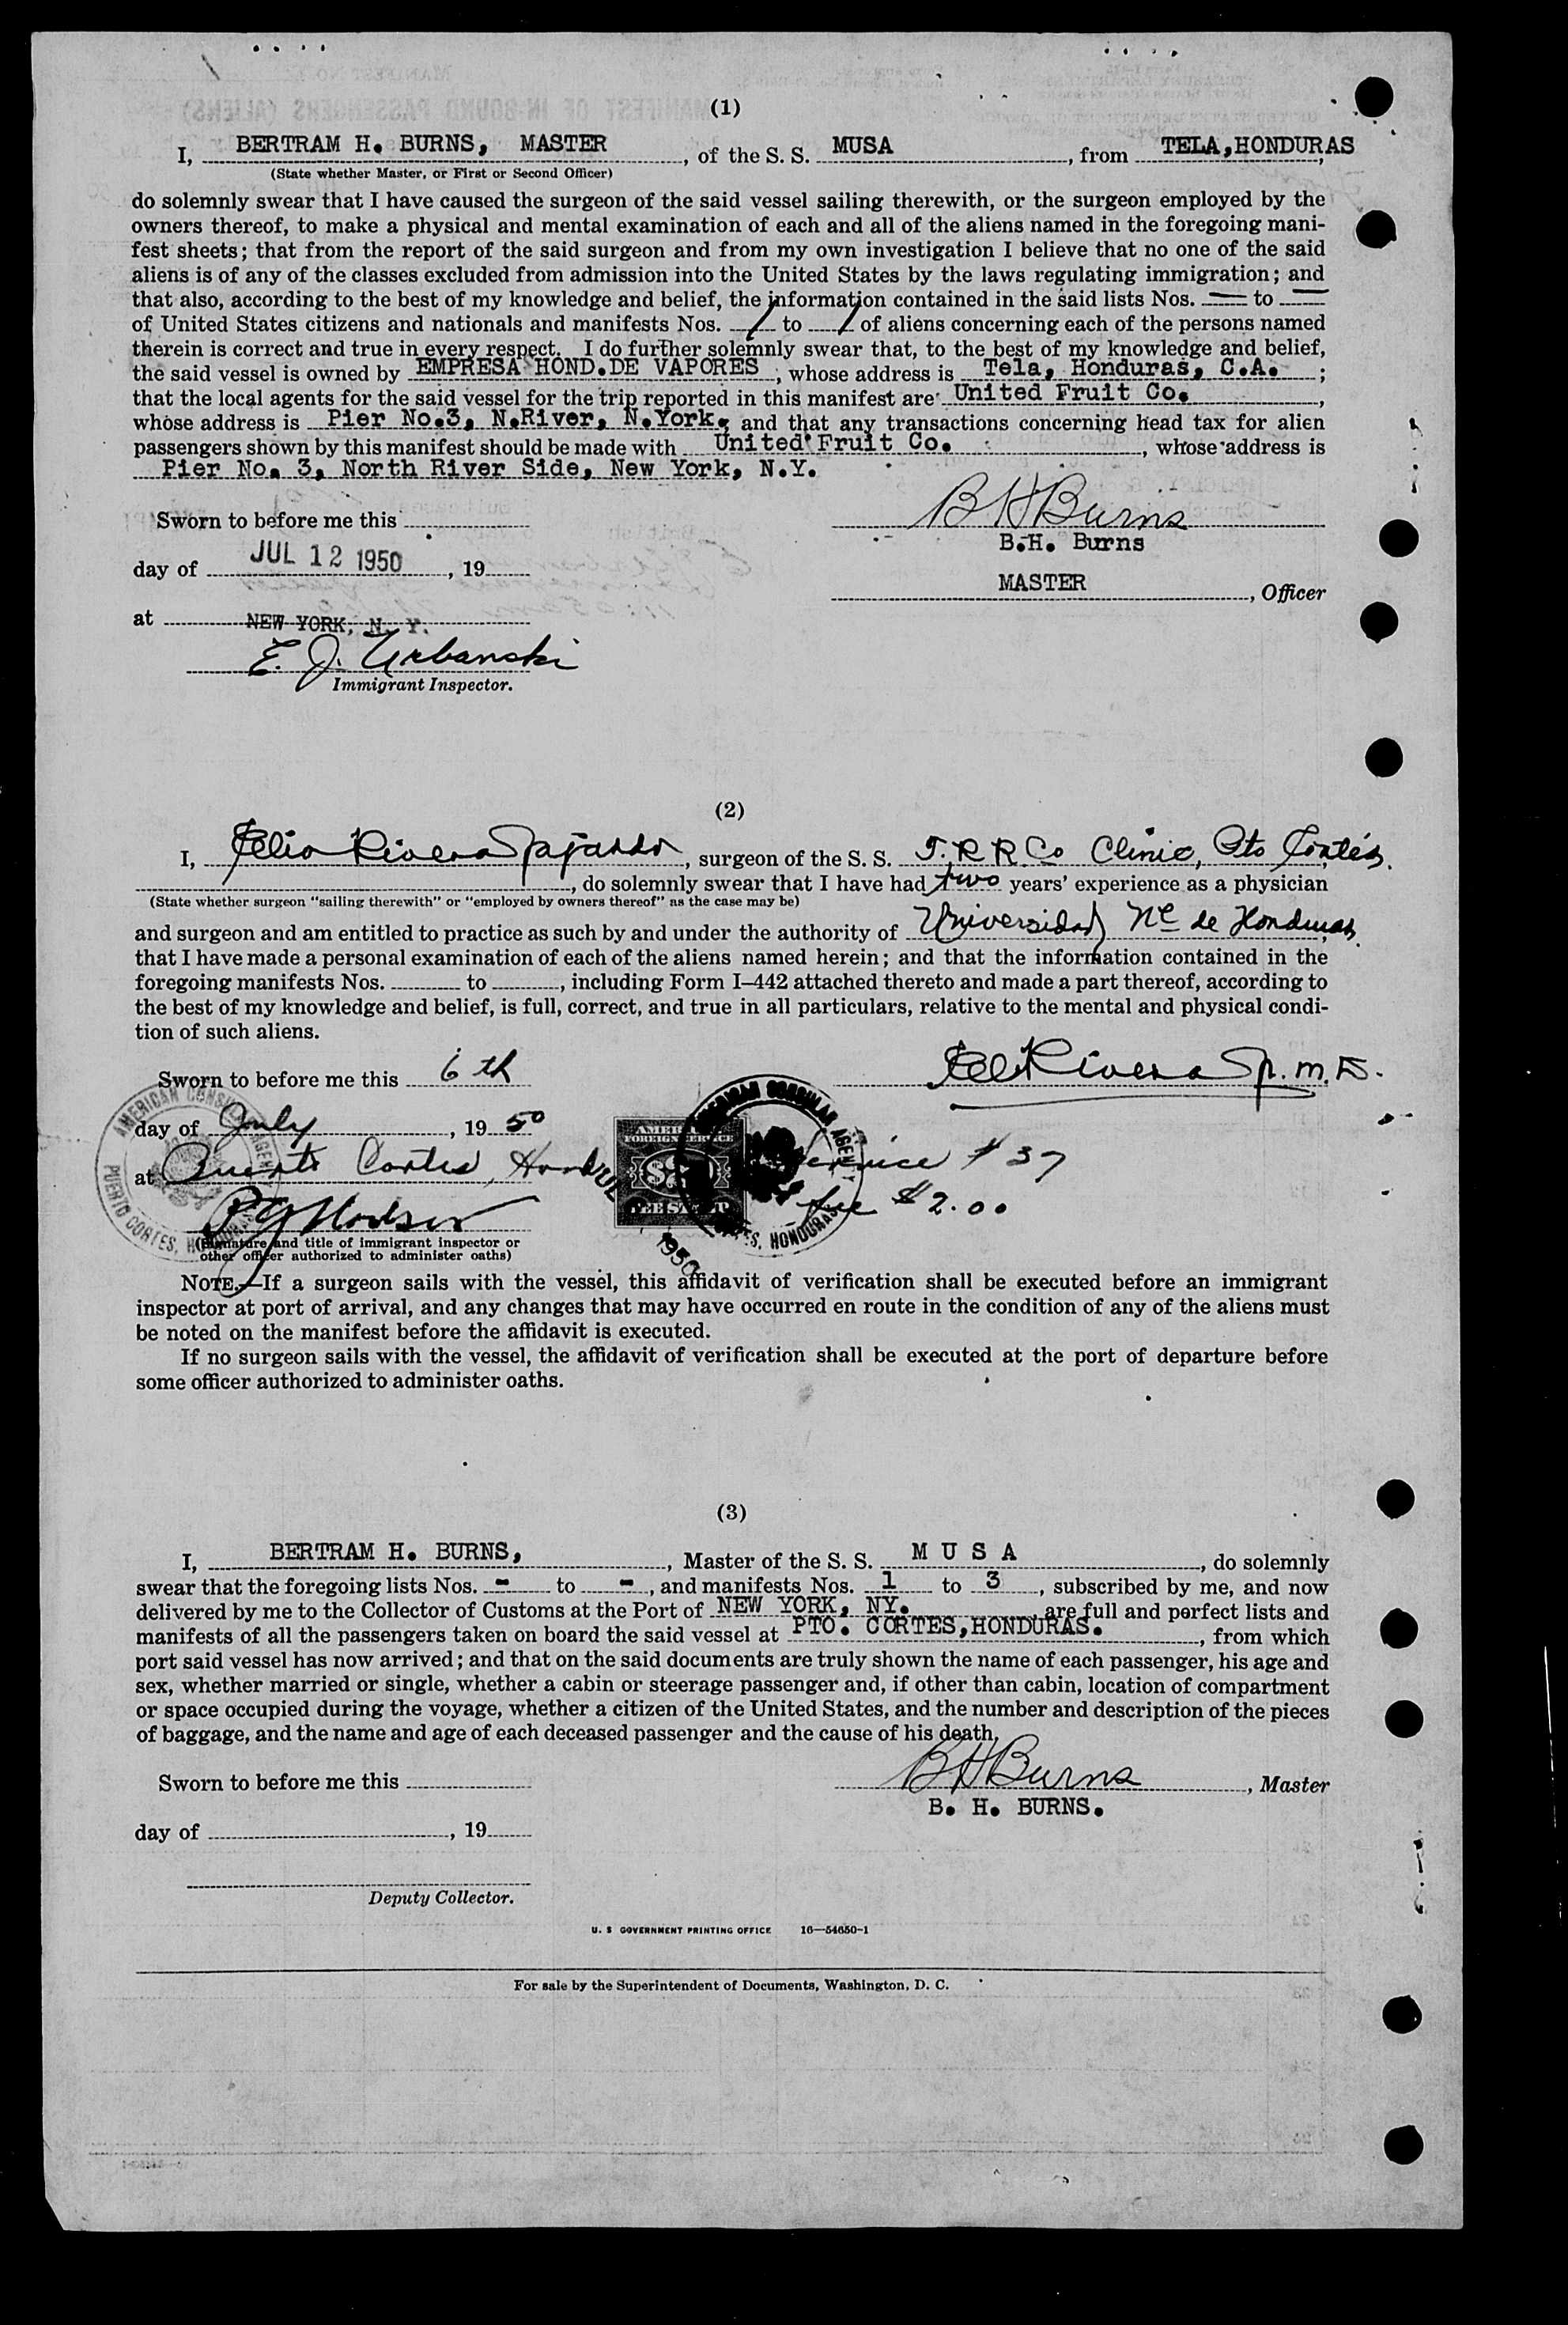 (1)
I, BERTRAM H. BURNS, MASTER, of the S. S. MUSA, from TELA, HONDURAS,
(State whether Master, or First or Second Officer)
do solemnly swear that I have caused the surgeon of the said vessel sailing therewith, or the surgeon employed by the
owners thereof, to make a physical and mental examination of each and all of the aliens named in the foregoing mani-
fest sheets; that from the report of the said surgeon and from my own investigation I believe that no one of the said
aliens is of any of the classes excluded from admission into the United States by the laws regulating immigration; and
that also, according to the best of my knowledge and belief, the information contained in the said lists Nos. — to —
of United States citizens and nationals and manifests Nos. / to / of aliens concerning each of the persons named
therein is correct and true in every respect. I do further solemnly swear that, to the best of my knowledge and belief,
the said vessel is owned by EMPRESA HOND.DE VAPORES, whose address is Tela, Honduras, C.A. ;
that the local agents for the said vessel for the trip reported in this manifest are United Fruit Co. ,
whose address is Pier No.3, N.River, N.York, and that any transactions concerning head tax for alien
passengers shown by this manifest should be made with United Fruit Co. , whose address is
Pier No. 3, North River Side, New York, N.Y.
BHBurns
Sworn to before me this
B.H. Burns
day of JUL 12 1950, 19
MASTER, Officer
at NEW YORK, N. Y.
E. J. Urbanski
Immigrant Inspector.
(2)
I, Rivera, surgeon of the S. S. T. R R Co Clinic, Pto Cortés.
, do solemnly swear that I have had two years' experience as a physician
(State whether surgeon "sailing therewith" or "employed by owners thereof" as the case may be)
and surgeon and am entitled to practice as such by and under the authority of Universidad Nl de Honduras,
that I have made a personal examination of each of the aliens named herein; and that the information contained in the
foregoing manifests Nos. to , including Form I–442 attached thereto and made a part thereof, according to
the best of my knowledge and belief, is full, correct, and true in all particulars, relative to the mental and physical condi-
tion of such aliens.
Sworn to before me this 6 th
Rivera M.D.
day of July, 19 50
at Puerto Cortes, Hond
AMERICAN CONSULAR AGENCY
PUERTO CORTES, HONDURAS
AMERICAN
FOREIGN SERVICE
FEE STAMP
JUL 1950
AMERICAN CONSULAR AGENCY
HONDURAS
Service # 37
fee $2.00
(Signature and title of immigrant inspector or
other officer authorized to administer oaths)
NOTE.—If a surgeon sails with the vessel, this affidavit of verification shall be executed before an immigrant
inspector at port of arrival, and any changes that may have occurred en route in the condition of any of the aliens must
be noted on the manifest before the affidavit is executed.
If no surgeon sails with the vessel, the affidavit of verification shall be executed at the port of departure before
some officer authorized to administer oaths.
(3)
I, BERTRAM H. BURNS, , Master of the S. S. M U S A , do solemnly
swear that the foregoing lists Nos. - to - , and manifests Nos. 1 to 3 , subscribed by me, and now
delivered by me to the Collector of Customs at the Port of NEW YORK, NY. are full and perfect lists and
manifests of all the passengers taken on board the said vessel at PTO. CORTES, HONDURAS. , from which
port said vessel has now arrived; and that on the said documents are truly shown the name of each passenger, his age and
sex, whether married or single, whether a cabin or steerage passenger and, if other than cabin, location of compartment
or space occupied during the voyage, whether a citizen of the United States, and the number and description of the pieces
of baggage, and the name and age of each deceased passenger and the cause of his death.
Sworn to before me this
BHBurns, Master
B. H. BURNS.
day of , 19
Deputy Collector.
U. S GOVERNMENT PRINTING OFFICE 16—54650-1
For sale by the Superintendent of Documents, Washington, D. C.